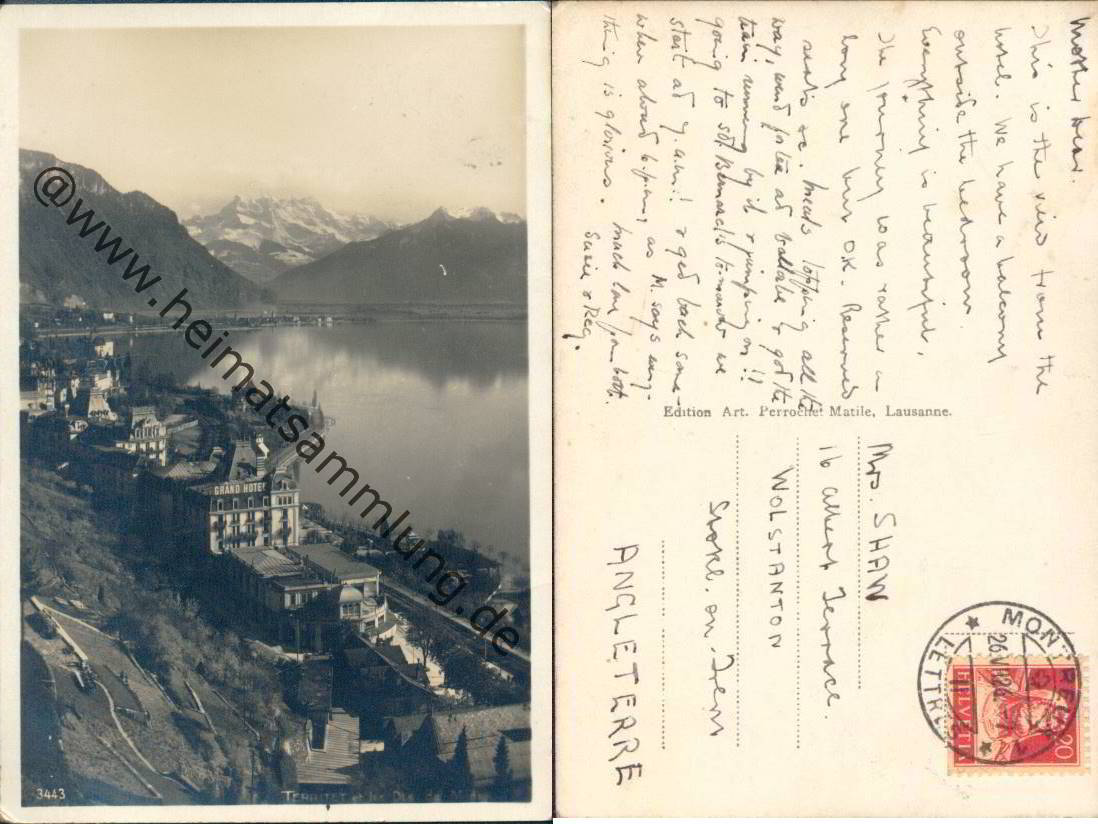 @www.heimatsammlung.de
GRAND HOTEL
3443
TERRITET et les Dts du Midi
Mother dear.
This is the view from the
hotel. We have a balcony
outside the bedroom.
Everything is beautiful.
The journey was rather a
long one but OK. Reserved
seats etc. topping all the
way, and for tea at &
got the
train moving by it & jumping on!!
going to St. Bernard's to-morrow we
start at 7 a.m! & get back some-
when about 6 p.m, as M. says every-
thing is glorious. Much love from both.
Susie & Reg.
Edition Art. Perrochet Matile, Lausanne.
Mrs. SHAW
16 Albert Terrace.
WOLSTANTON
Stoke. on. Trent
ANGLETERRE
MONTREUX
LETTRES
26.VI.
HELVETIA
20